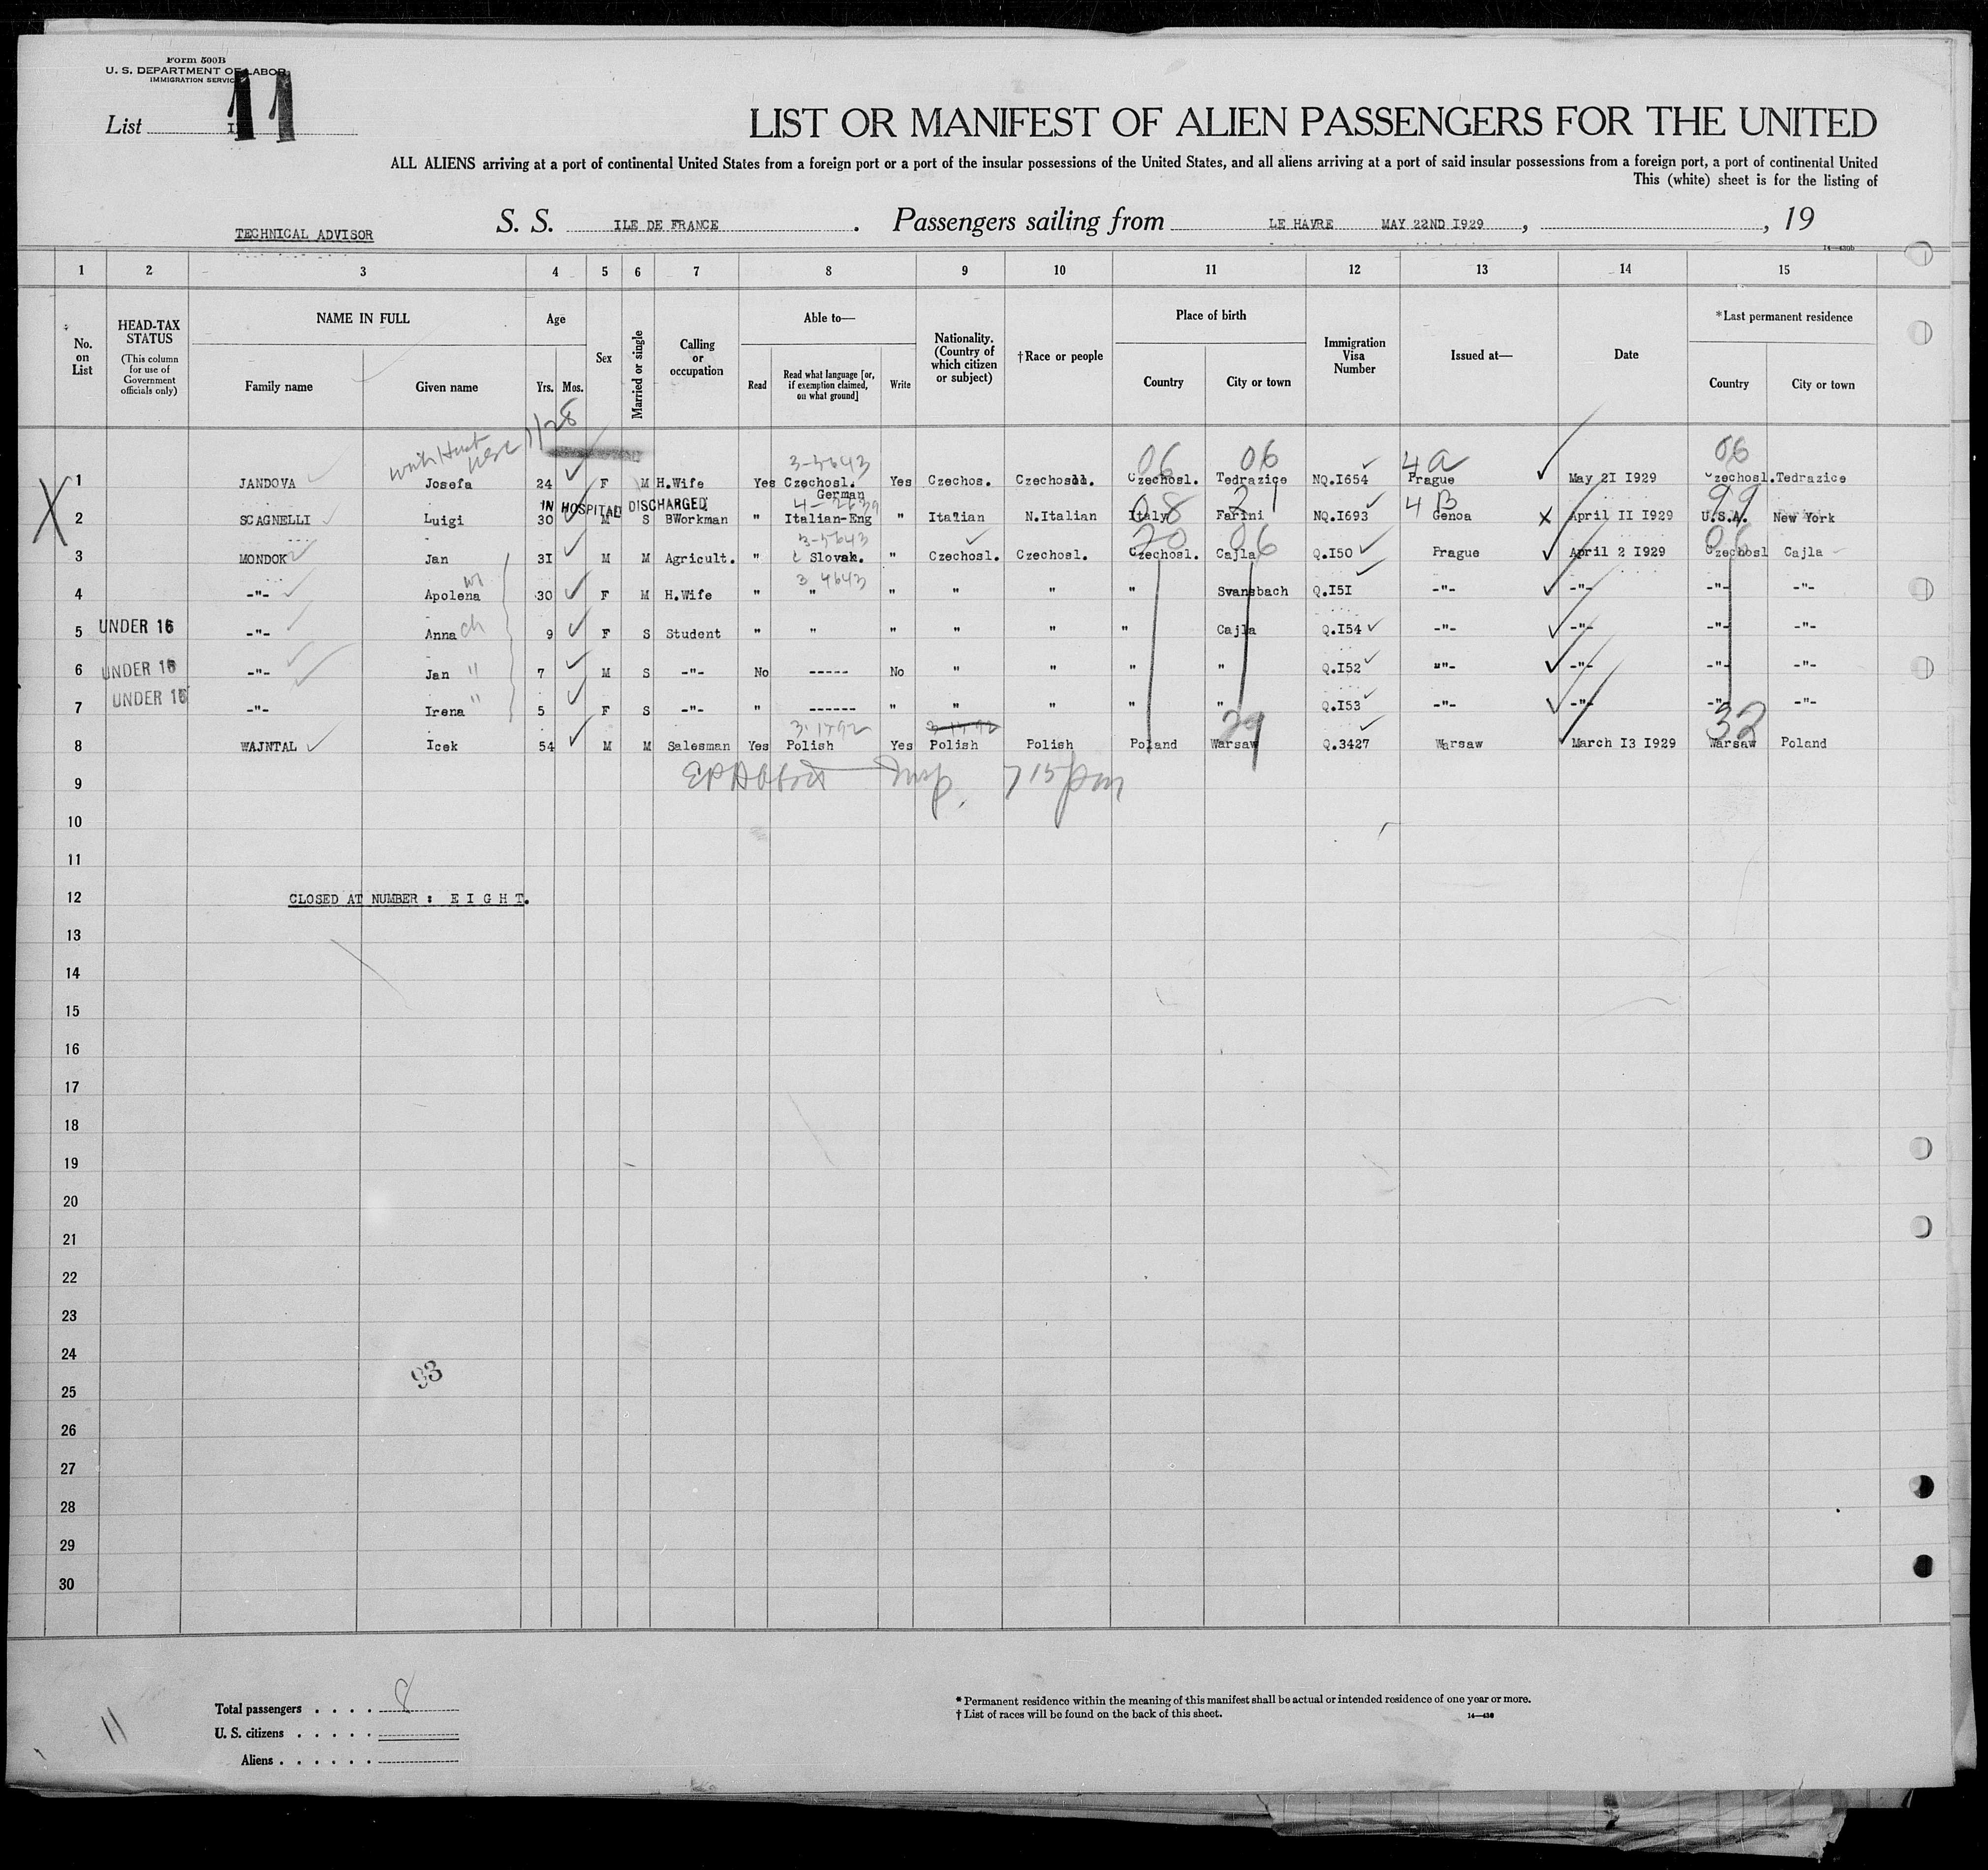 Form 500B
U. S. DEPARTMENT OF LABOR
IMMIGRATION SERVICE
List 11
LIST OR MANIFEST OF ALIEN PASSENGERS FOR THE UNITED
ALL ALIENS arriving at a port of continental United States from a foreign port or a port of the insular possessions of the United States, and all aliens arriving at a port of said insular possessions from a foreign port, a port of continental United
This (white) sheet is for the listing of
TECHNICAL ADVISOR S. S. ILE DE FRANCE . Passengers sailing from LE HAVRE MAY 22ND I929 , , 19
1 2 3 4 5 6 7 8 9 10 11 12 13 14 15
No. on List
HEAD-TAX STATUS (This column for use of Government officials only)
NAME IN FULL
Family name Given name
Age
Yrs. Mos.
Sex
Married or single
Calling or occupation
Able to—
Read Read what language [or, if exemption claimed, on what ground] Write
Nationality. (Country of which citizen or subject)
†Race or people
Place of birth
Country City or town
Immigration Visa Number
Issued at—
Date
*Last permanent residence
Country City or town
11/28
3-5643 06 06 4a 06
1 JANDOVA Josefa 24 F M H.Wife Yes Czechosl. Yes Czechos. Czechosll. Czechosl. Tedrazice NQ.I654 Prague May 2I I929 Czechosl. Tedrazice
German
IN HOSPITAL DISCHARGED
08 21 4B 99
2 SCAGNELLI Luigi 30 M S BWorkman " Italian-Eng " Italian N.Italian Italy Farini NQ.I693 Genoa X April II I929 U.S.A. New York
3-5643 20 06 06
3 MONDOK Jan 3I M M Agricult. " Slovak. " Czechosl. Czechosl. Czechosl. Cajla Q.I50 Prague April 2 I929 Czechosl Cajla
3 4643
4 -"- Apolena 30 F M H.Wife " " " " " " Svansbach Q.I5I -"- -"- -"- -"-
5 UNDER 16 -"- Anna ch 9 F S Student " " " " " " Cajla Q.I54 -"- -"- -"- -"-
6 UNDER 16 -"- Jan " 7 M S -"- No ----- No " " " " Q.I52 -"- -"- -"- -"-
7 UNDER 16 -"- Irena " 5 F S -"- " ------ " " " " " Q.I53 -"- -"- -"- -"-
29 32
8 WAJNTAL Icek 54 M M Salesman Yes Polish Yes Polish Polish Poland Warsaw Q.3427 Warsaw March I3 I929 Warsaw Poland
9 Insp. 715pm
10
11
12 CLOSED AT NUMBER : E I G H T.
13
14
15
16
17
18
19
20
21
22
23
24
93
25
26
27
28
29
30
Total passengers . . . . 8
U. S. citizens . . . . .
Aliens . . . . . .
11
* Permanent residence within the meaning of this manifest shall be actual or intended residence of one year or more.
† List of races will be found on the back of this sheet.
14—430